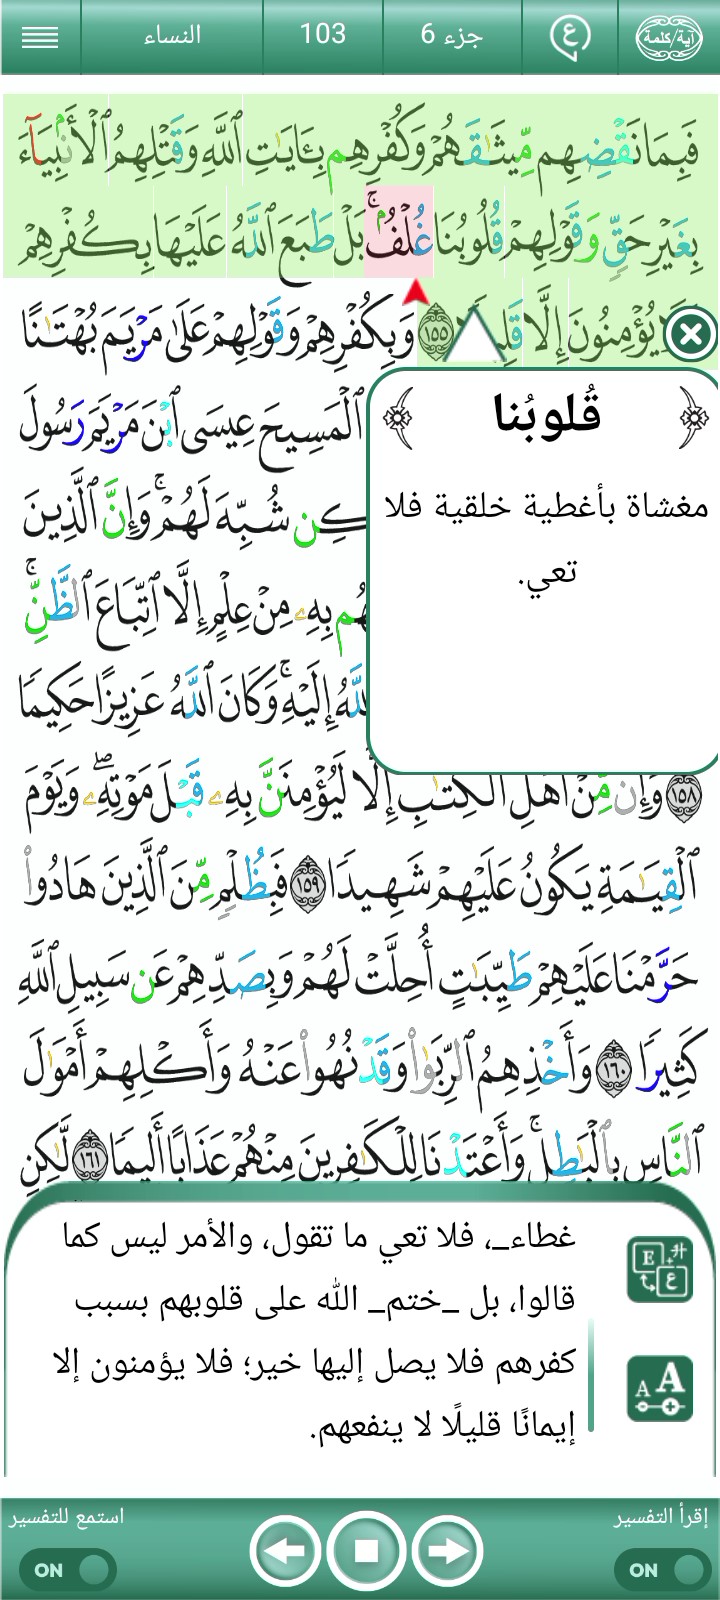 آية/كلمة
ع
جزء 6
103
النساء
فَبِمَا نَقْضِهِم مِّيثَٰقَهُمْ وَكُفْرِهِم بِـَٔايَٰتِ ٱللَّهِ وَقَتْلِهِمُ ٱلْأَنۢبِيَآءَ
بِغَيْرِ حَقٍّ وَقَوْلِهِمْ قُلُوبُنَا غُلْفٌۢ ۚ بَلْ طَبَعَ ٱللَّهُ عَلَيْهَا بِكُفْرِهِمْ
يُؤْمِنُونَ إِلَّا ١٥٥ وَبِكُفْرِهِمْ وَقَوْلِهِمْ عَلَىٰ مَرْيَمَ بُهْتَٰنًا
ٱلْمَسِيحَ عِيسَى ٱبْنَ مَرْيَمَ رَسُولَ
ـكِن شُبِّهَ لَهُمْ ۚ وَإِنَّ ٱلَّذِينَ
ـهُم بِهِۦ مِنْ عِلْمٍ إِلَّا ٱتِّبَاعَ ٱلظَّنِّ ۚ
إِلَيْهِ ۚ وَكَانَ ٱللَّهُ عَزِيزًا حَكِيمًا
١٥٨ وَإِن مِّنْ أَهْلِ ٱلْكِتَٰبِ إِلَّا لَيُؤْمِنَنَّ بِهِۦ قَبْلَ مَوْتِهِۦ ۖ وَيَوْمَ
ٱلْقِيَٰمَةِ يَكُونُ عَلَيْهِمْ شَهِيدًا ١٥٩ فَبِظُلْمٍ مِّنَ ٱلَّذِينَ هَادُوا۟
حَرَّمْنَا عَلَيْهِمْ طَيِّبَٰتٍ أُحِلَّتْ لَهُمْ وَبِصَدِّهِمْ عَن سَبِيلِ ٱللَّهِ
كَثِيرًا ١٦٠ وَأَخْذِهِمُ ٱلرِّبَوٰا۟ وَقَدْ نُهُوا۟ عَنْهُ وَأَكْلِهِمْ أَمْوَٰلَ
ٱلنَّاسِ بِٱلْبَٰطِلِ ۚ وَأَعْتَدْنَا لِلْكَٰفِرِينَ مِنْهُمْ عَذَابًا أَلِيمًا ١٦١ لَّٰكِنِ
قُلوبُنا
مغشاة بأغطية خلقية فلا
تعي.
غطاء_، فلا تعي ما تقول، والأمر ليس كما
قالوا، بل _ختم_ الله على قلوبهم بسبب
كفرهم فلا يصل إليها خير؛ فلا يؤمنون إلا
إيمانًا قليلًا لا ينفعهم.
E ع
A A
إقرأ التفسير
ON
استمع للتفسير
ON